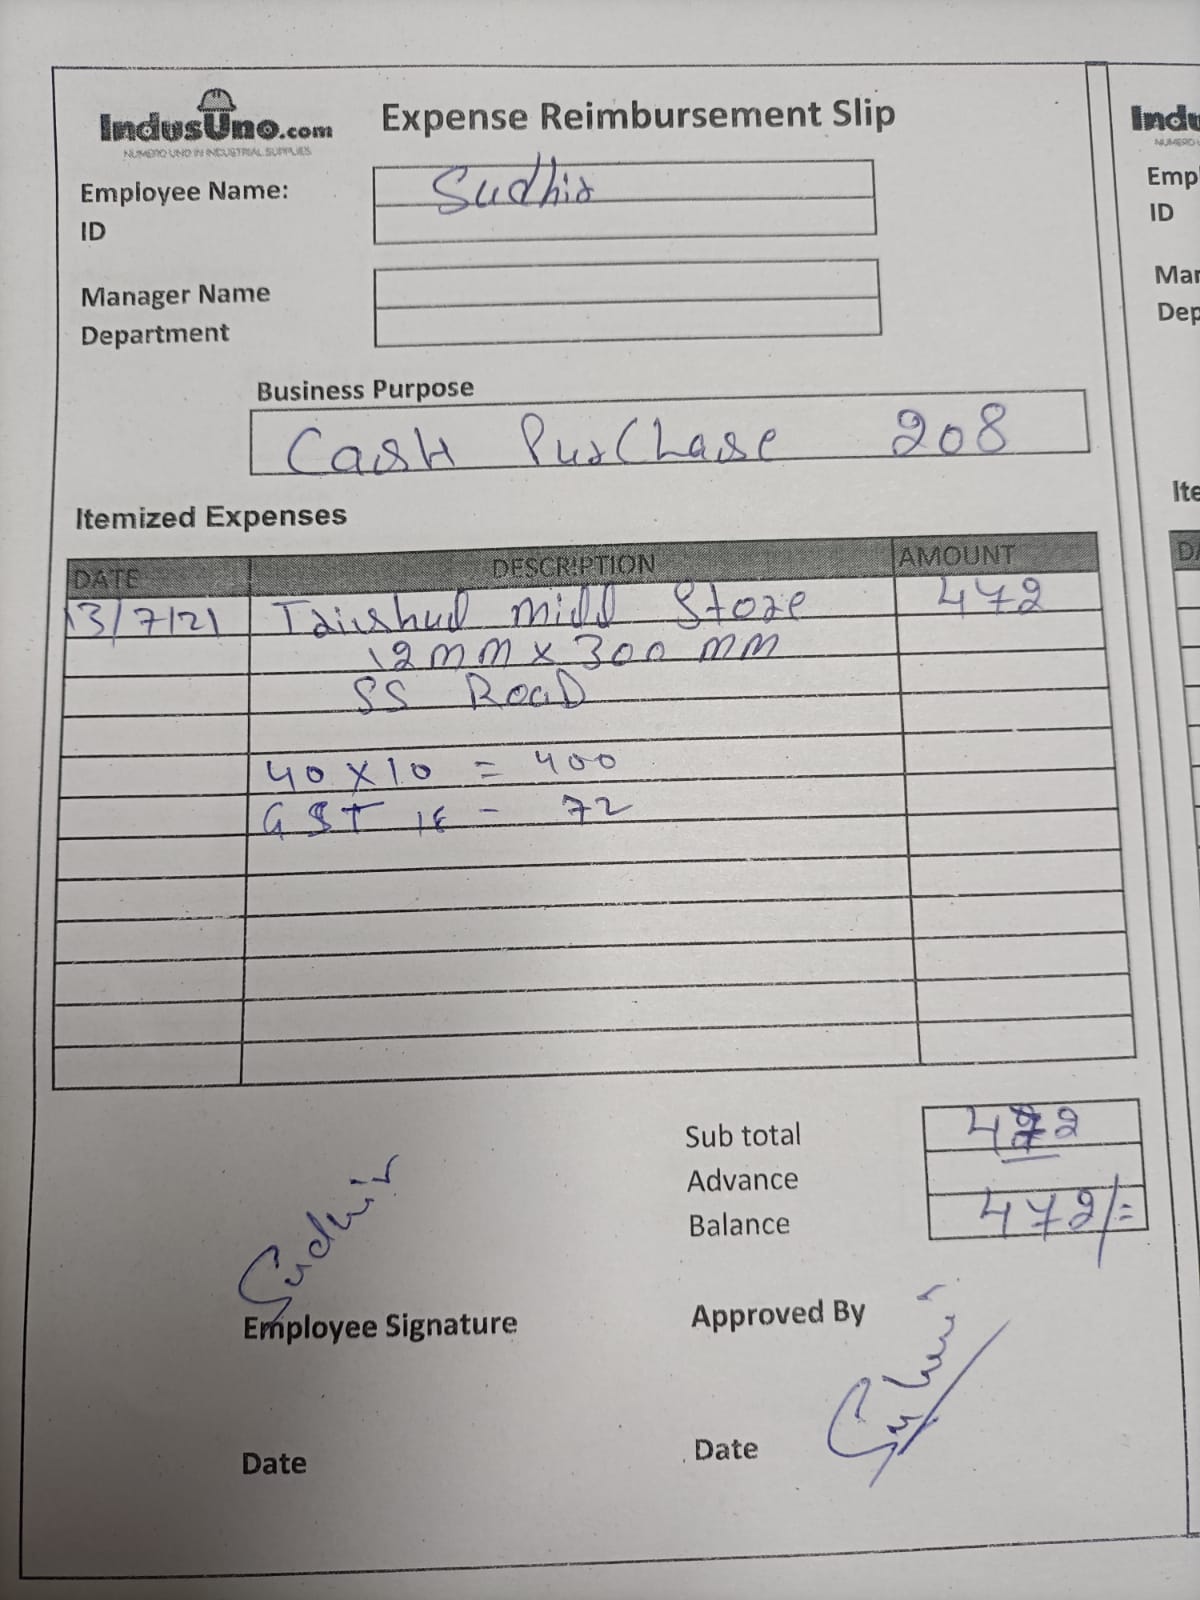 IndusUno.com
NUMERO UNO IN INDUSTRIAL SUPPLIES
Expense Reimbursement Slip
Employee Name: Sudhir
ID
Manager Name
Department
Business Purpose
Cash Purchase 208
Itemized Expenses
DATE DESCRIPTION AMOUNT
13/7/21 Mill Store 472
12mm x 300 mm
SS RoaD
40 x 10 = 400
GST 18 - 72
Sub total 472
Advance
Balance 472/=
Sudhir
Employee Signature
Approved By
Date
Date
Indu
NUMERO U
Emp
ID
Mar
Dep
Ite
DA